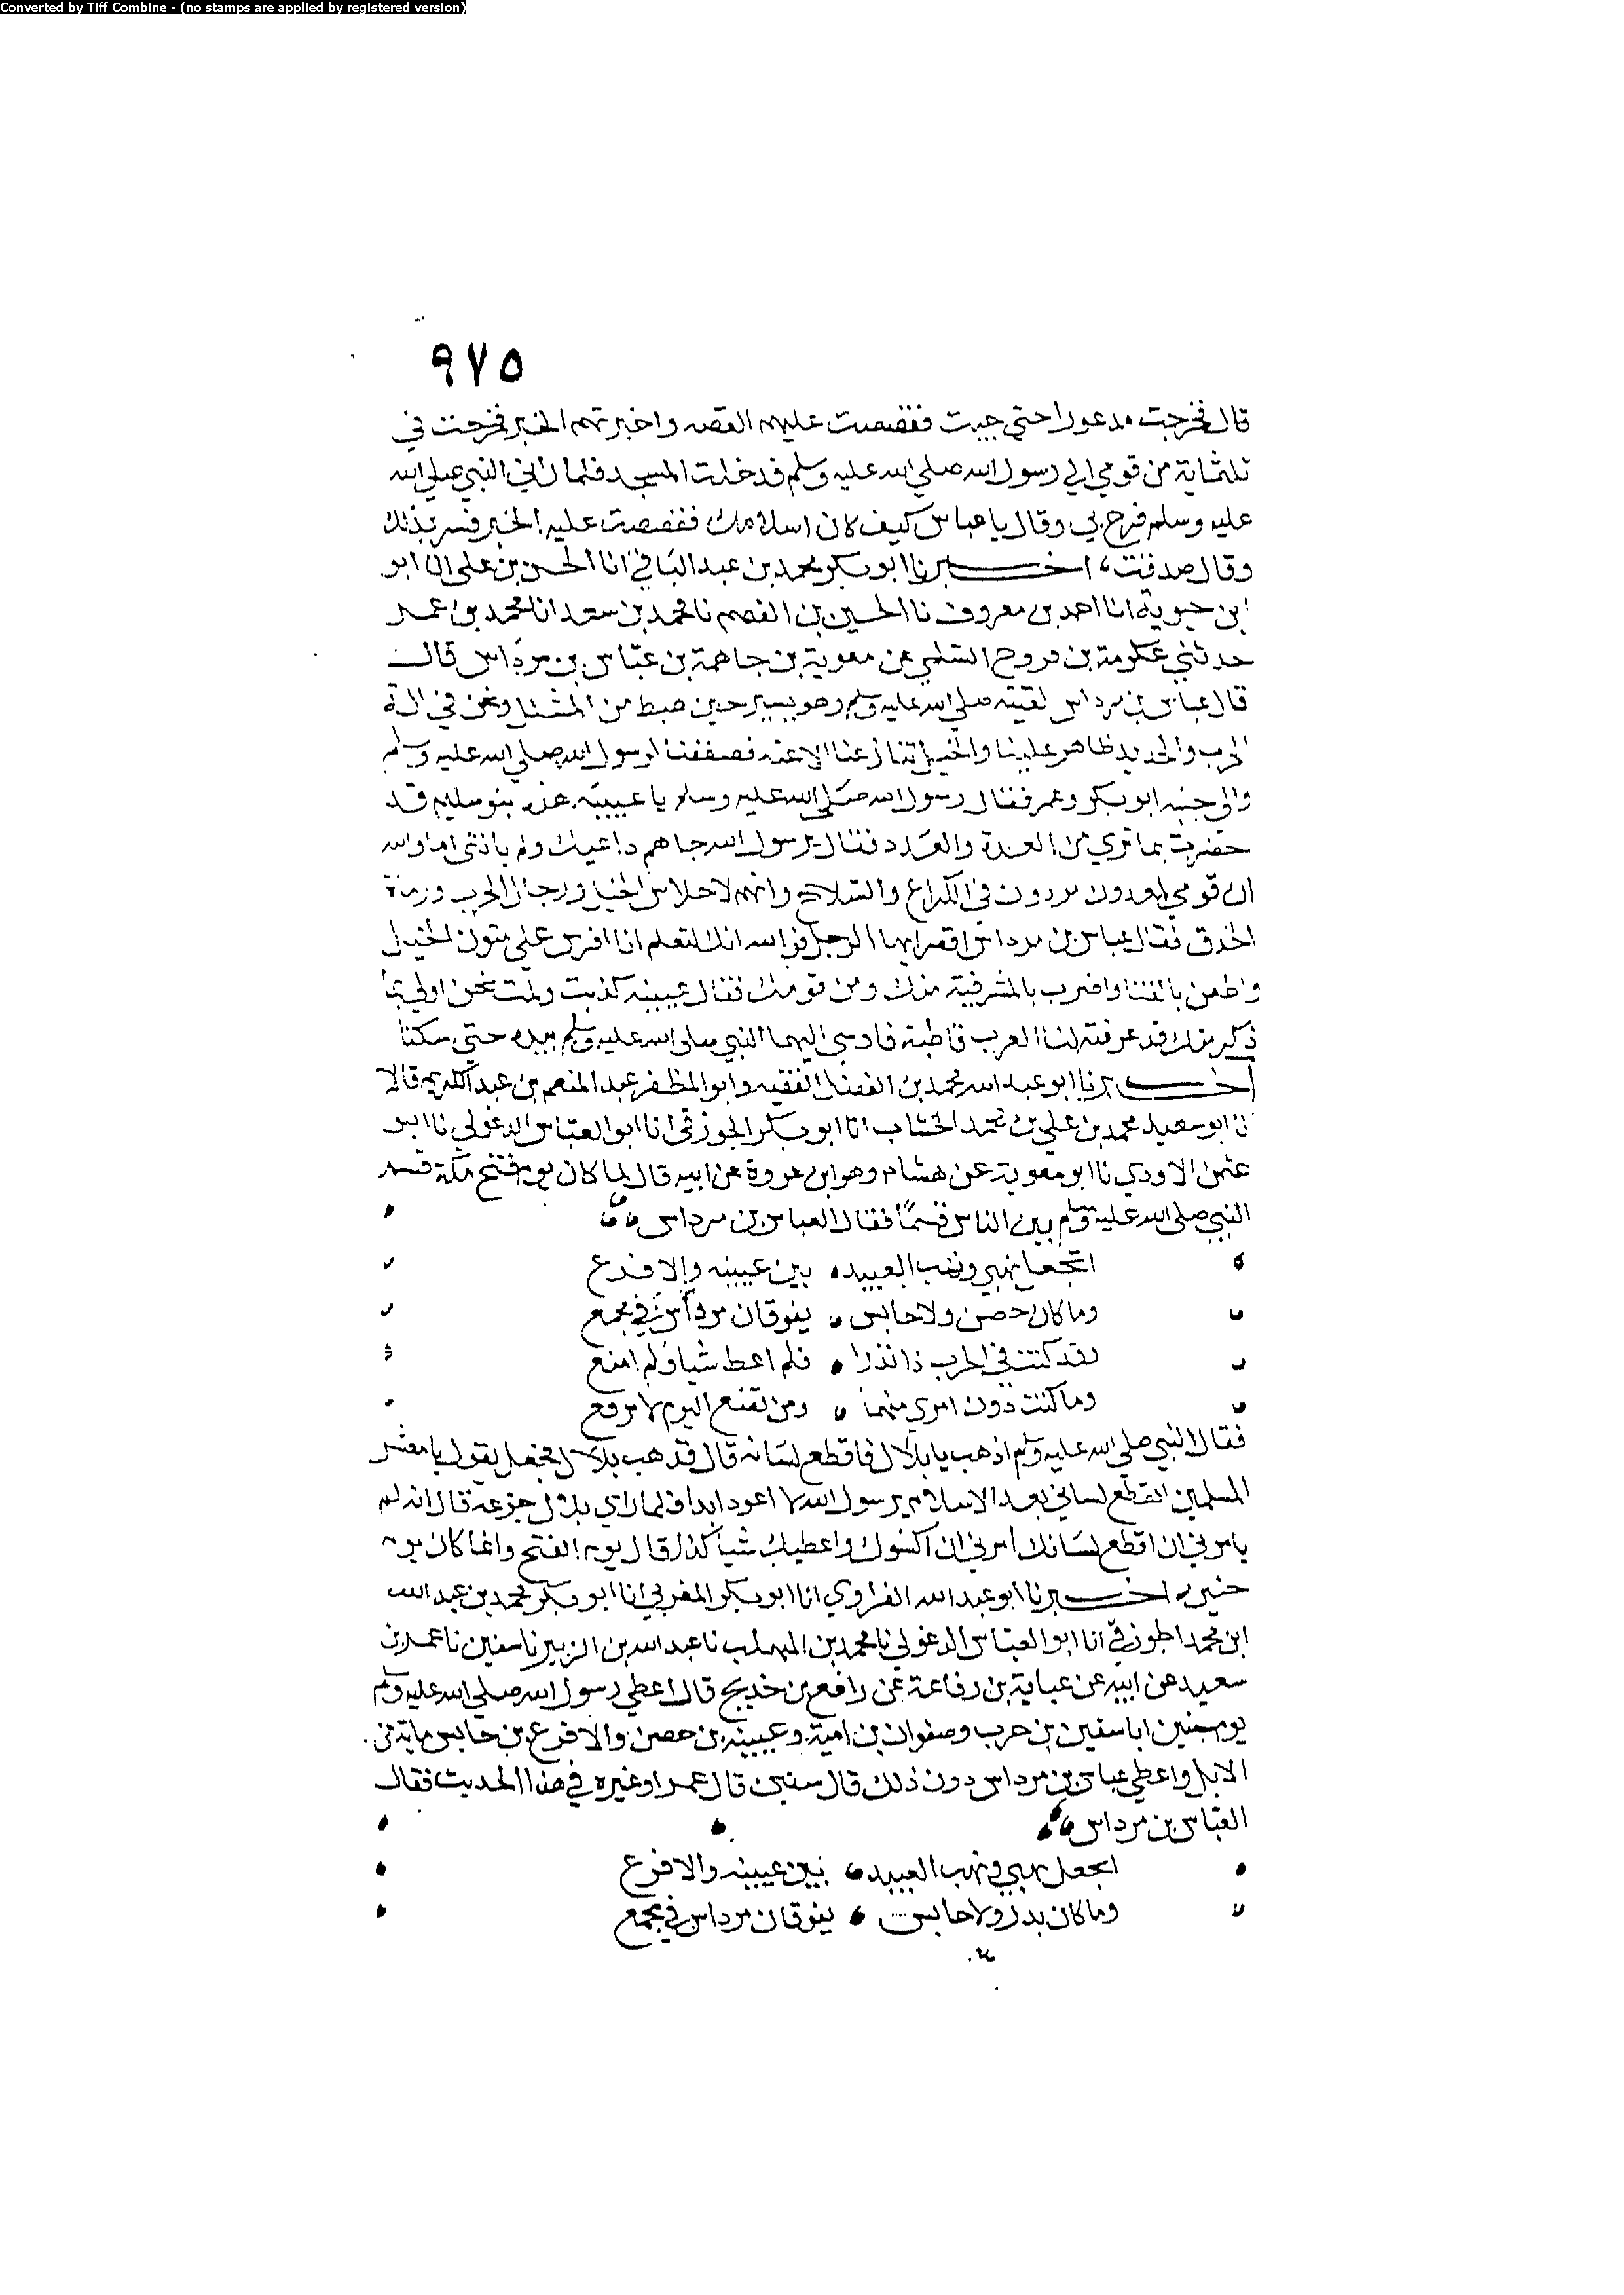 Converted by Tiff Combine - (no stamps are applied by registered version)
٩٧٥
قال فخرجت مدعورا حتى جيت فقصصت عليهم القصه واخبرتهم الخبر فخرجت في
ثلثماية من قومي الي رسول الله صلي الله عليه وسلم فدخلت المسجد فلما راني النبي صلي الله
عليه وسلم فرح بي وقال يا عباس كيف كان اسلامك فقصصت عليه الخبر فسر بذلك
وقال صدقت اخبرنا ابو بكر محمد بن عبد الباقي انا الحسن بن علي انا ابو
ابن حيوية انا احمد بن معروف نا الحسين بن الفهم نا محمد بن سعد انا محمد بن عمر
حدثني عكرمة بن فروخ السلمي عن معوية بن جاهمة بن عباس بن مرداس قال
قال عباس بن مرداس لقيته صلي الله عليه وسلم وهو يسير حين هبط من المشلل ونحن في الة
الحرب والحديد ظاهر علينا والخيل تنازعنا الاعنه فصففنا لرسول الله صلي الله عليه وسلم
والي جنبه ابو بكر وعمر فقال رسول الله صلي الله عليه وسلم يا عيينه هذه بنو سليم قد
حضرت بما تري من العدة والعدد فقال يرسول الله جاهم داعيك ولم ياتني اما والله
ان قومي لمعدون مردون في الكراع والسلاح وانهم لاحلاس الخيل ورجال الحرب ورماة
الحدق فقال عباس بن مرداس اقصر ايها الرجل فوالله انك لتعلم انا افرس علي متون الخيل
واطعن بالقنا واضرب بالمشرفية منك ومن قومك فقال عيينه كذبت ولمت نحن اولي بما
ذكرت منك قد عرفته لنا العرب قاطبة فاومى اليهما النبي صلى الله عليه وسلم بيده حتي سكتا
اخبرنا ابو عبد الله محمد بن الفضل الفقيه وابو المظفر عبد المنعم بن عبد الكريم قالا
انا ابو سعيد محمد بن علي بن محمد الخشاب انا ابو بكر الجوزقي انا ابو العباس الدغولي نا ابو
عثمن الاودي نا ابو معوية عن هشام وهو ابن عروة عن ابيه قال لما كان يوم فتح مكة قسم
النبي صلى الله عليه وسلم بين الناس قسما فقال العباس بن مرداس
اتجعل نهبي ونهب العبيد بين عيينه والاقرع
وما كان حصن ولا حابس يفوقان مرداس في مجمع
وقد كنت في الحرب ذا تدرا فلم اعط شيا ولم امنع
وما كنت دون امري منهما ومن تضع اليوم لا يرفع
فقال النبي صلى الله عليه وسلم اذهب يا بلال فاقطع لسانه قال فذهب بلال فجعل يقول يا معشر
المسلمين ايقطع لساني بعد الاسلام يرسول الله لا اعود ابدا فلما راي بلال جزعه قال انه لم
يامرني ان اقطع لسانك امرني ان اكسوك واعطيك شيا كذا قال يوم الفتح وانما كان يوم
حنين اخبرنا ابو عبد الله الفراوي انا ابو بكر المغربي انا ابو بكر محمد بن عبد الله
ابن محمد الجوزقي انا ابو العباس الدغولي نا محمد بن المهلب نا عبد الله بن الزبير نا سفين نا عمر بن
سعيد عن ابيه عن عباية بن رفاعة عن رافع بن خديج قال اعطي رسول الله صلي الله عليه وسلم
يوم حنين ابا سفين بن حرب وصفوان بن امية وعيينه بن حصن والاقرع بن حابس ماية من
الابل واعطي عباس بن مرداس دون ذلك قال سفين قال عمر او غيره في هذا الحديث فقال
العباس بن مرداس
اتجعل نهبي ونهب العبيد بين عيينه والاقرع
وما كان بدر ولا حابس يفوقان مرداس في مجمع